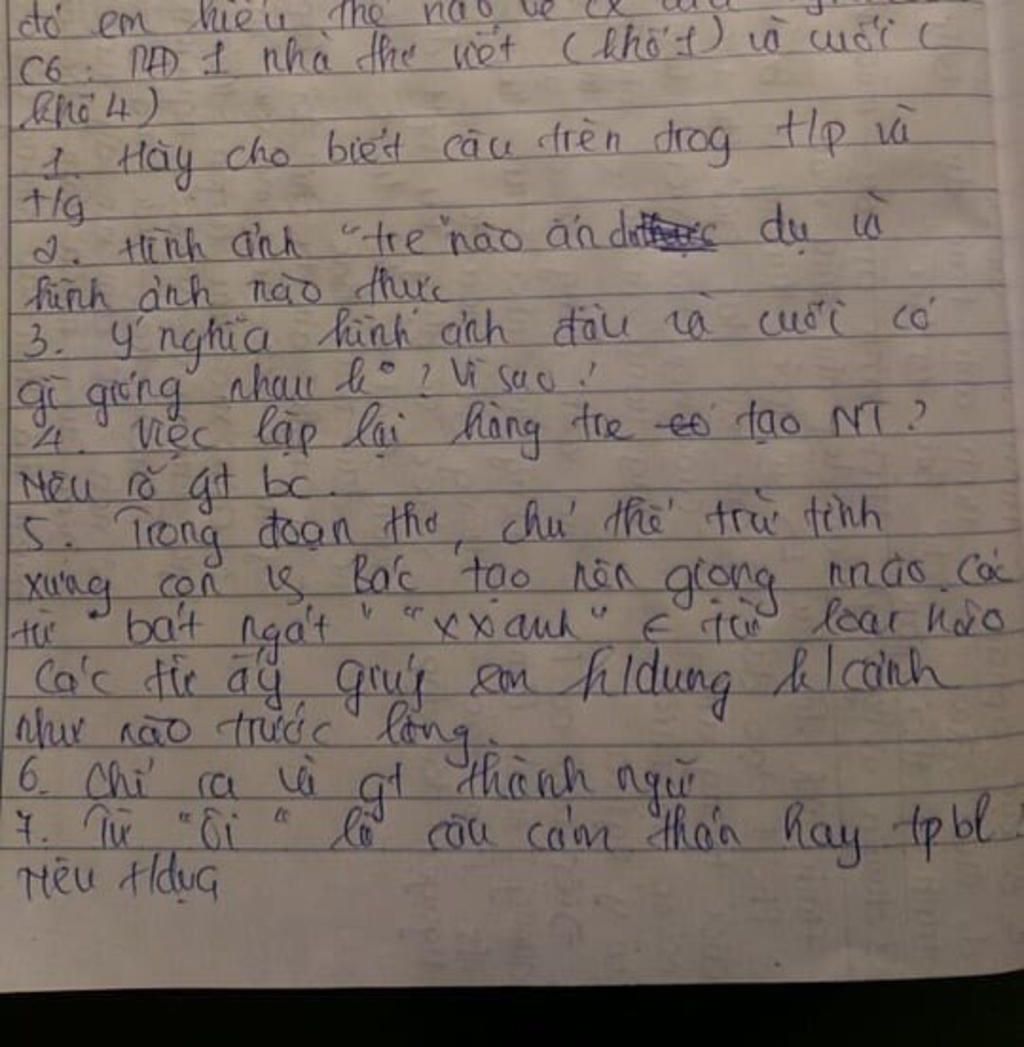 đó em hiểu thế nào về
C6: MĐ 1 nhà thơ viết (khổ 1) và cuối (
khổ 4)
1. Hãy cho biết câu trên trog t/p và
t/g
2. Hình ảnh "tre" nào ẩn dụ và
hình ảnh nào thực
3. Ý nghĩa hình ảnh đầu và cuối có
gì giống nhau k°? Vì sao?
4. Việc lặp lại hàng tre có tạo NT?
Nêu rõ gt bc.
5. Trong đoạn thơ, chủ thể trữ tình
xưng con vs Bác tạo nên giọng nnào. Các
từ "bát ngát" "xx anh" ∈ từ loại nào
Các từ ấy giúp em h/dung k/cảnh
như nào trước lăng.
6. Chỉ ra và gt thành ngữ
7. Từ "ôi" là câu cảm thán hay tpbl
Nêu t/dụg